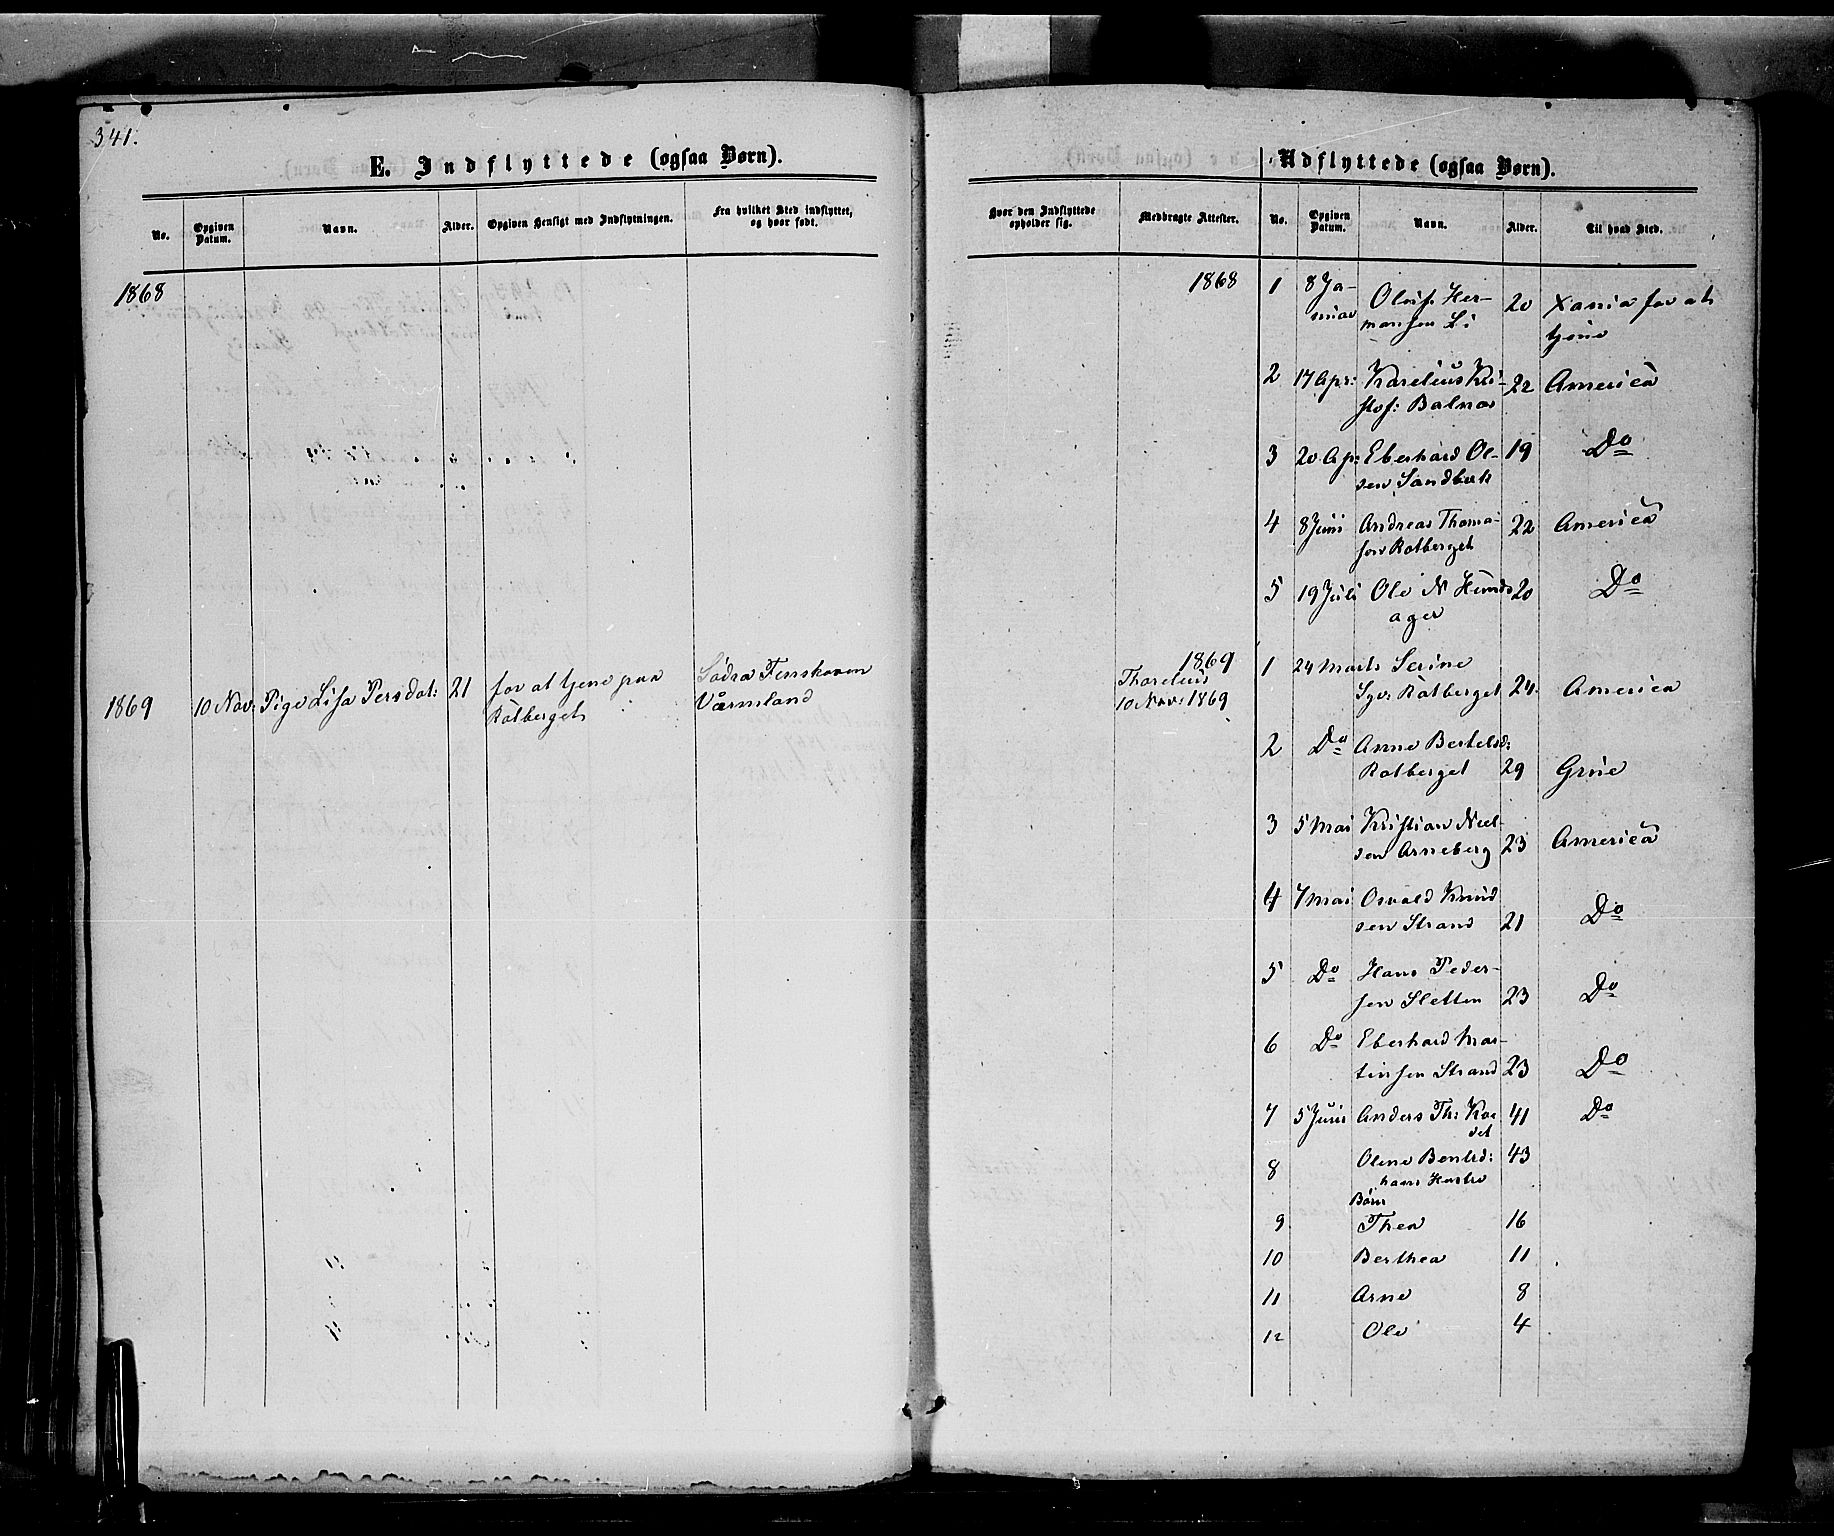 341.
E. Indflyttede (ogsaa Børn).
No. Opgiven Datum. Navn. Alder. Opgiven Hensigt med Indflytningen. Fra hvilket Sted indflyttet, og hvor født.
1868
1869 10 Nov: Pige Lisa Persdat: 21 for at tjene paa Södra Finskoven
Rotberget Värmland
Udflyttede (ogsaa Børn).
Hvor den Indflyttede opholder sig. Medbragte Attester. No. Opgiven Datum. Navn. Alder. Til hvad Sted.
1868 1 8 Ja- Oluf Her- 20 Xania for at
nuar mansen Li tjene
2 17 Apr: Karelius Kri- 22 America
stof: Balnæs
3 20 Ap: Eberhard Ol- 19 Do
sen Sandbæk
4 8 Juni Andreas Thoma- 22 America
sen Rotberget
5 19 Juli Ole N Hunds 20 Do
ager
1869 1 24 Marts Serine
Thorelius
10 Nov: 1869
Syv: Rotberget 24 America
2 Do Anne Bertelsd:
Rotberget 29 Grue
3 5 Mai Kristian Niel-
sen Arneberg 23 America
4 7 Mai Osvald Knud
sen Strand 21 Do
5 Do Hans Peder-
sen Sletten 23 Do
6 Do Eberhard Mar-
tinsen Strand 23 Do
7 5 Juni Anders Th: 41 Do
8 Olene Bentsd: 43
hans Hustru
Børn
9 Thea 16
10 Berthea 11
11 Arne 8
12 Ole 4